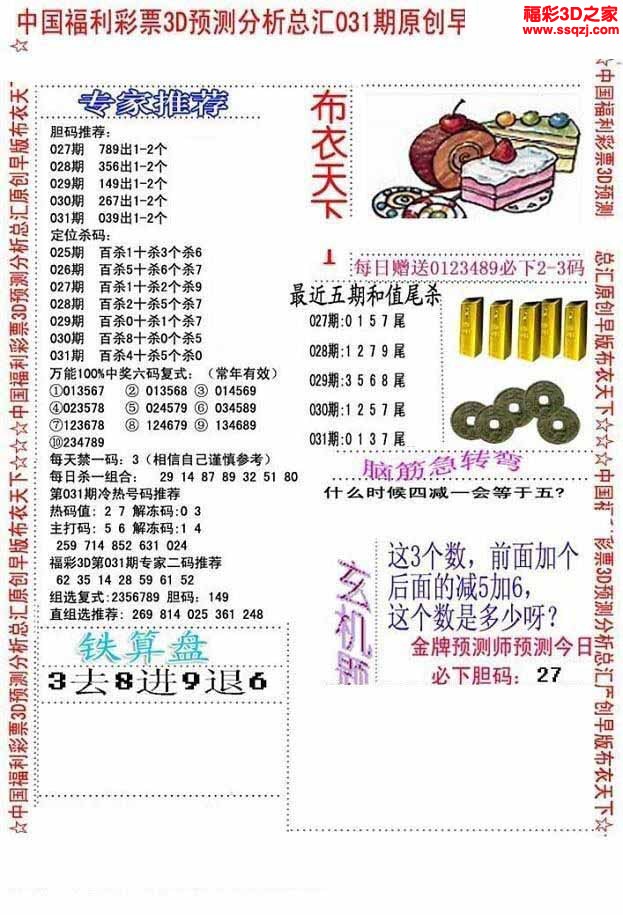 中国福利彩票3D预测分析总汇031期原创早
福彩3D之家
www.ssqzj.com
☆中国福利彩票3D预测分析总汇原创早版布衣天下☆☆☆中国福利彩票3D预测分析总汇原创早版布衣天
专家推荐
胆码推荐:
027期 789出1-2个
028期 356出1-2个
029期 149出1-2个
030期 267出1-2个
031期 039出1-2个
定位杀码:
025期 百杀1十杀3个杀6
026期 百杀5十杀6个杀7
027期 百杀1十杀2个杀9
028期 百杀2十杀5个杀7
029期 百杀0十杀1个杀7
030期 百杀8十杀0个杀5
031期 百杀4十杀5个杀0
万能100%中奖六码复式:(常年有效)
①013567 ②013568 ③014569
④023578 ⑤024579 ⑥034589
⑦123678 ⑧124679 ⑨134689
⑩234789
每天禁一码:3(相信自己谨慎参考)
每日杀一组合: 29 14 87 89 32 51 80
第031期冷热号码推荐
热码值:2 7 解冻码:0 3
主打码:5 6 解冻码:1 4
259 714 852 631 024
福彩3D第031期专家二码推荐
62 35 14 28 59 61 52
组选复式:2356789 胆码:149
直组选推荐:269 814 025 361 248
铁算盘
3去8进9退6
布衣天下
每日赠送0123489必下2-3码
最近五期和值尾杀
027期:0 1 5 7 尾
028期:1 2 7 9 尾
029期:3 5 6 8 尾
030期:1 2 5 7 尾
031期:0 1 3 7 尾
脑筋急转弯
什么时候四减一会等于五?
玄机题
这3个数,前面加个
后面的减5加6,
这个数是多少呀?
金牌预测师预测今日
必下胆码: 27
☆中国福利彩票3D预测
总汇原创早版布衣天下☆☆☆中国福
彩票3D预测分析总汇
创早版布衣天下☆